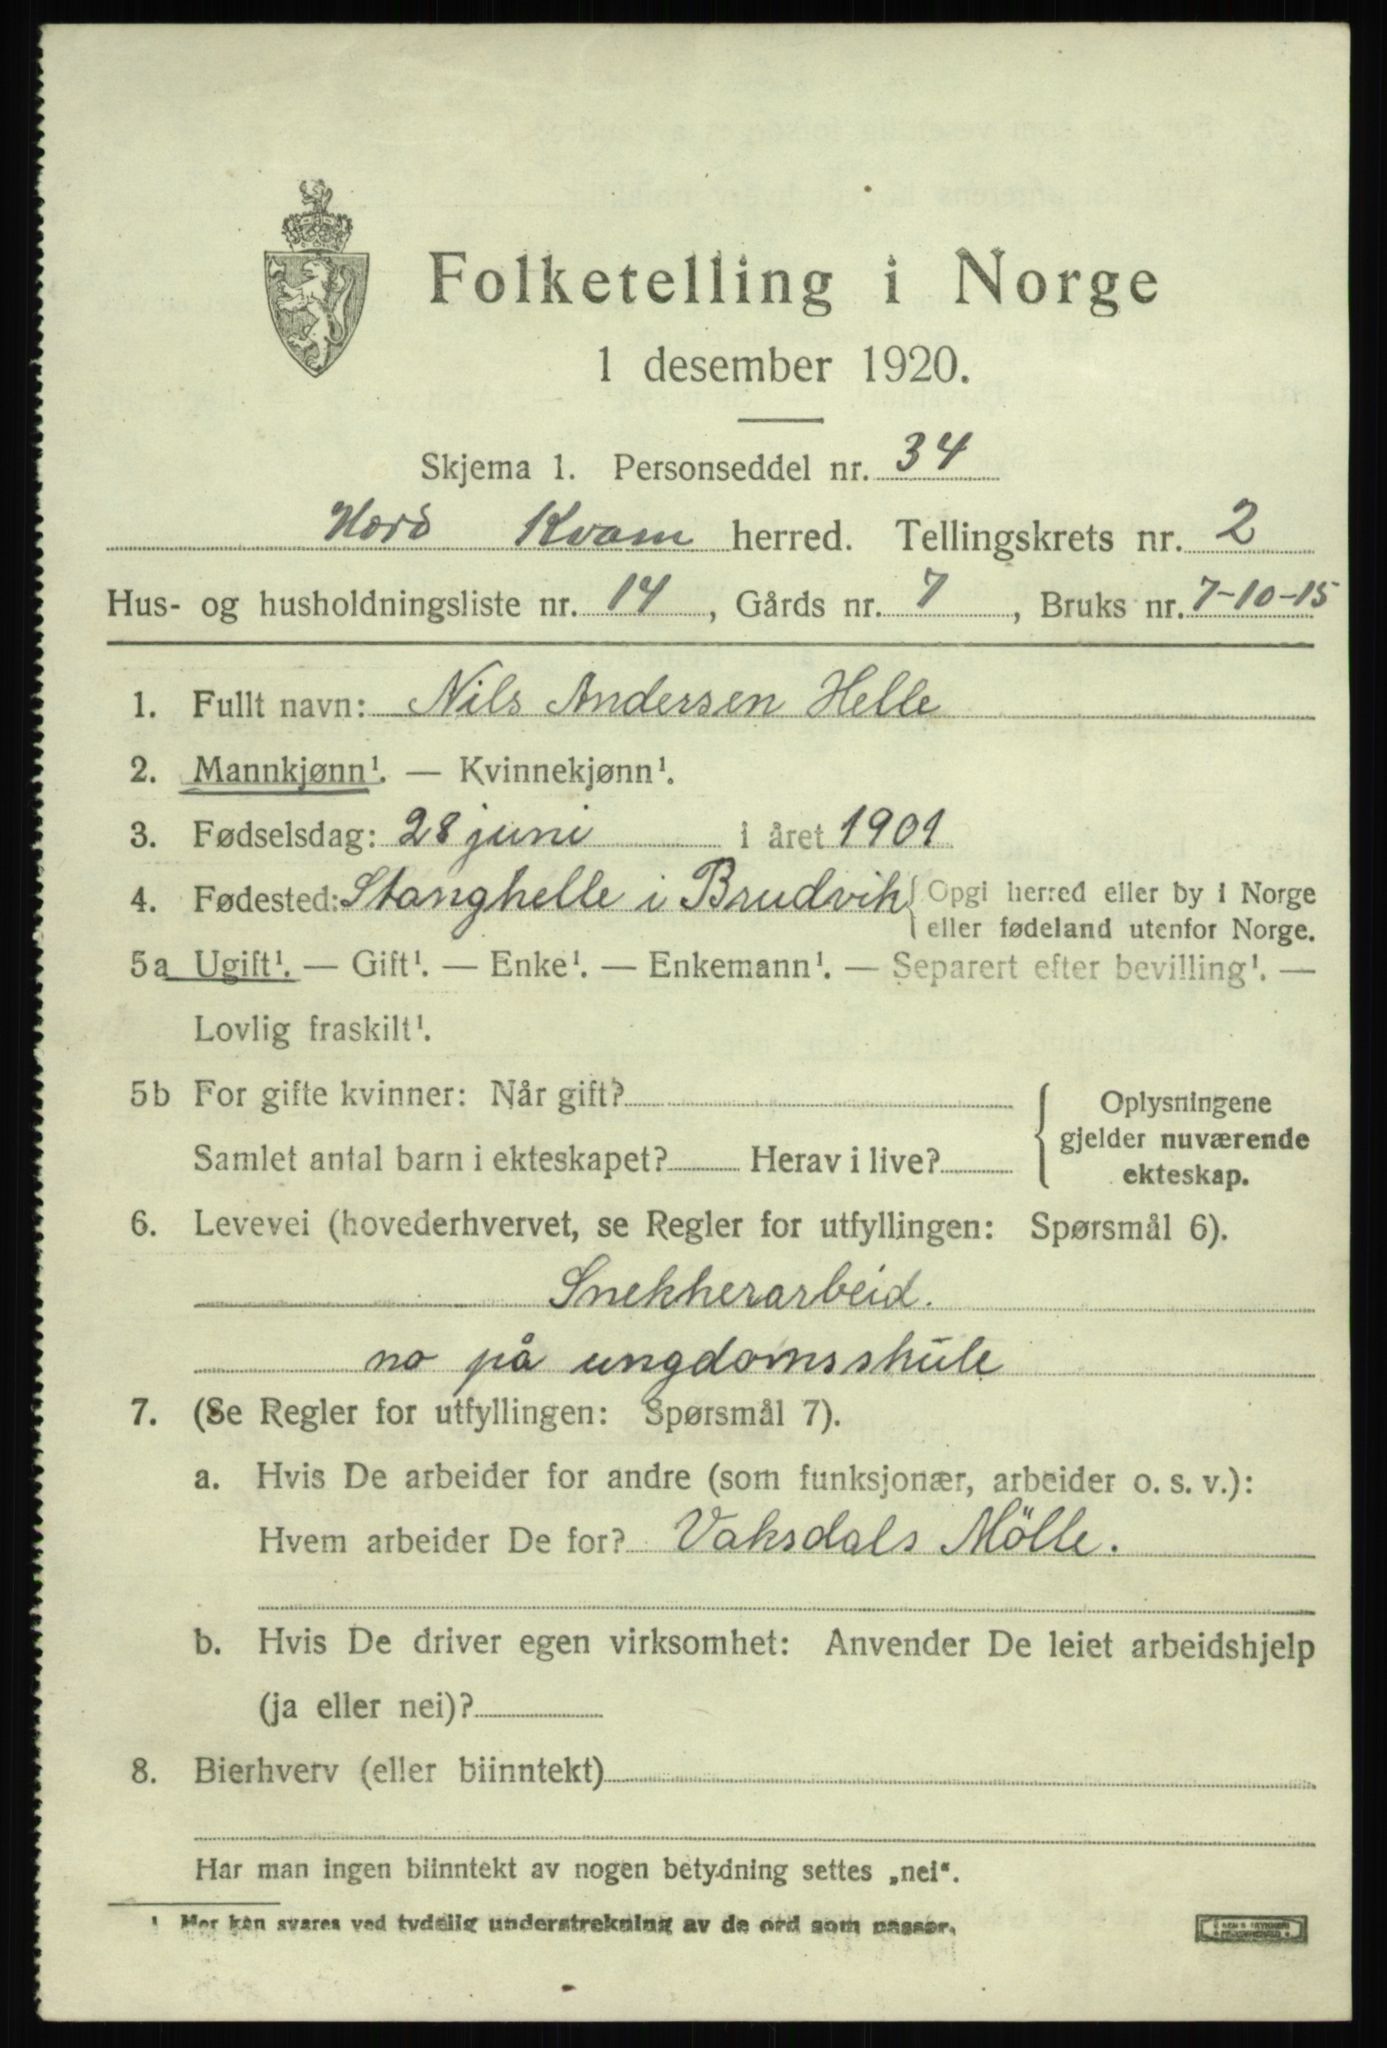 Folketelling i Norge
1 desember 1920.
Skjema 1. Personseddel nr. 34
Kvam herred. Tellingskrets nr. 2
Hus- og husholdningsliste nr. 14, Gårds nr. 7, Bruks nr. 7-10-15
1. Fullt navn: Nils Andersen Helle
2. Mannkjønn¹. — Kvinnekjønn¹.
3. Fødselsdag: 28 juni i året 1901
4. Fødested: Stanghelle i Brudvik { Opgi herred eller by i Norge
eller fødeland utenfor Norge.
5a Ugift¹. — Gift¹. — Enke¹. — Enkemann¹. — Separert efter bevilling¹. —
Lovlig fraskilt¹.
5b For gifte kvinner: Når gift?
Samlet antal barn i ekteskapet? Herav i live?
{ Oplysningene
gjelder nuværende
ekteskap.
6. Levevei (hovederhvervet, se Regler for utfyllingen: Spørsmål 6).
Snekkerarbeid.
no på ungdomsskule
7. (Se Regler for utfyllingen: Spørsmål 7).
a. Hvis De arbeider for andre (som funksjonær, arbeider o. s. v.):
Hvem arbeider De for? Vaksdals Mölle.
b. Hvis De driver egen virksomhet: Anvender De leiet arbeidshjelp
(ja eller nei)?
8. Bierhverv (eller biinntekt)
Har man ingen biinntekt av nogen betydning settes „nei“.
¹ Her kan svares ved tydelig understrekning av de ord som passer.